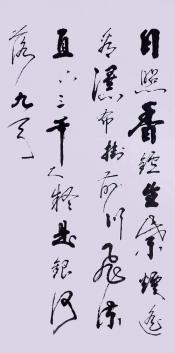 日照香鑪生紫煙遙
看瀑布掛前川飛流
直下三千尺疑是銀河
落九天